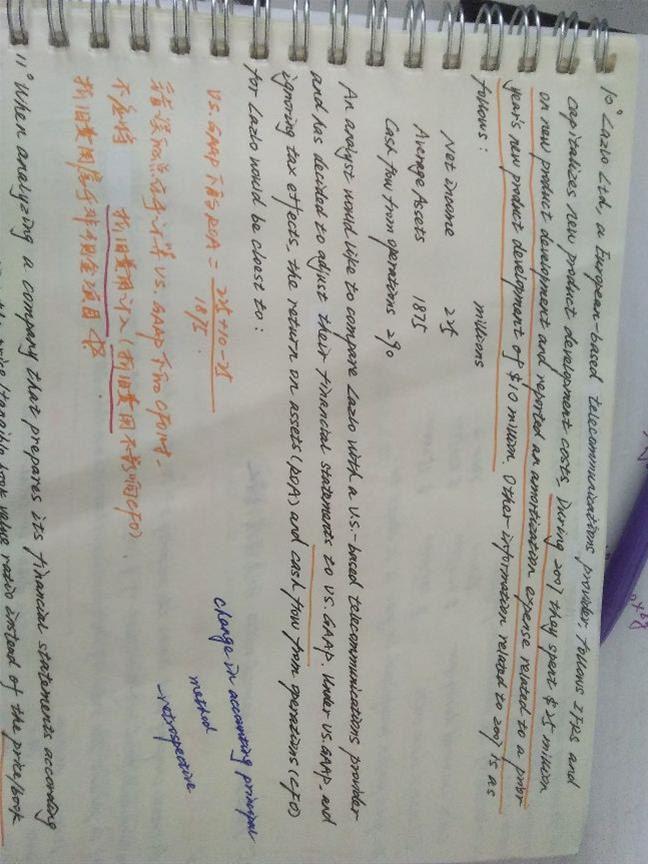 10° Lazlo Ltd, a European-based telecommunications provider, follows IFRS and
capitalizes new product development costs. During 2007 they spent $25 million
on new product development and reported an amortization expense related to a prior
year's new product development of $10 million. Other information related to 2007 is as
follows:
millions
Net income 225
Average Assets 1875
Cash flow from operations 290
An analyst would like to compare Lazlo with a U.S.-based telecommunications provider
and has decided to adjust their financial statements to US. GAAP. Under US. GAAP, and
ignoring tax effects, the return on assets (ROA) and cash flow from operations (CFO)
for Lazlo would be closest to:
US. GAAP下的ROA = 225+10-25
1875
错误
US. GAAP下
CFO时,
不应将 折旧费用计入 (折旧费用不影响CFO)
折旧费用属于非现金项目
change in accounting principal
method
-retrospective
11° When analyzing a company that prepares its financial statements according
ratio instead of the price/book